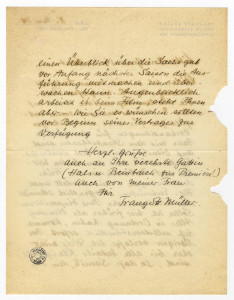 einen Überblick über die Sache gab
vor Anfang nächster Saison die Auf-
führung mitmachen und über-
wachen kann. Augenblicklich
arbeitet er beim Film, steht Ihnen
aber wie Sie es wünschen
vor Beginn seines Vertrages zur
Verfügung
Herzl. Grüße
auch an Ihre verehrte Gattin
(Hals u. Beinbruch zur Premiere!)
Auch von meiner Frau
Ihr
Franz Müller